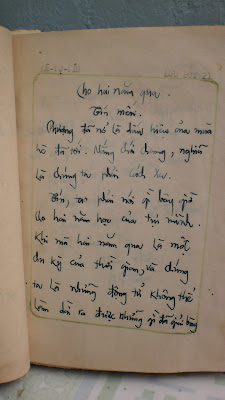 Cho hai năm qua.
Tôn mến.
Phượng đã nở là dấu hiệu của mùa
hè đã tới. Nắng chói chang, nghĩa
là chúng ta phải cách xa.
Tôn, ta phải nói gì bây giờ
cho hai năm học của tụi mình.
Khi mà hai năm qua là một
chu kỳ của thời gian, và chúng
ta là những động tử không thể
làm ra được những gì đã qua